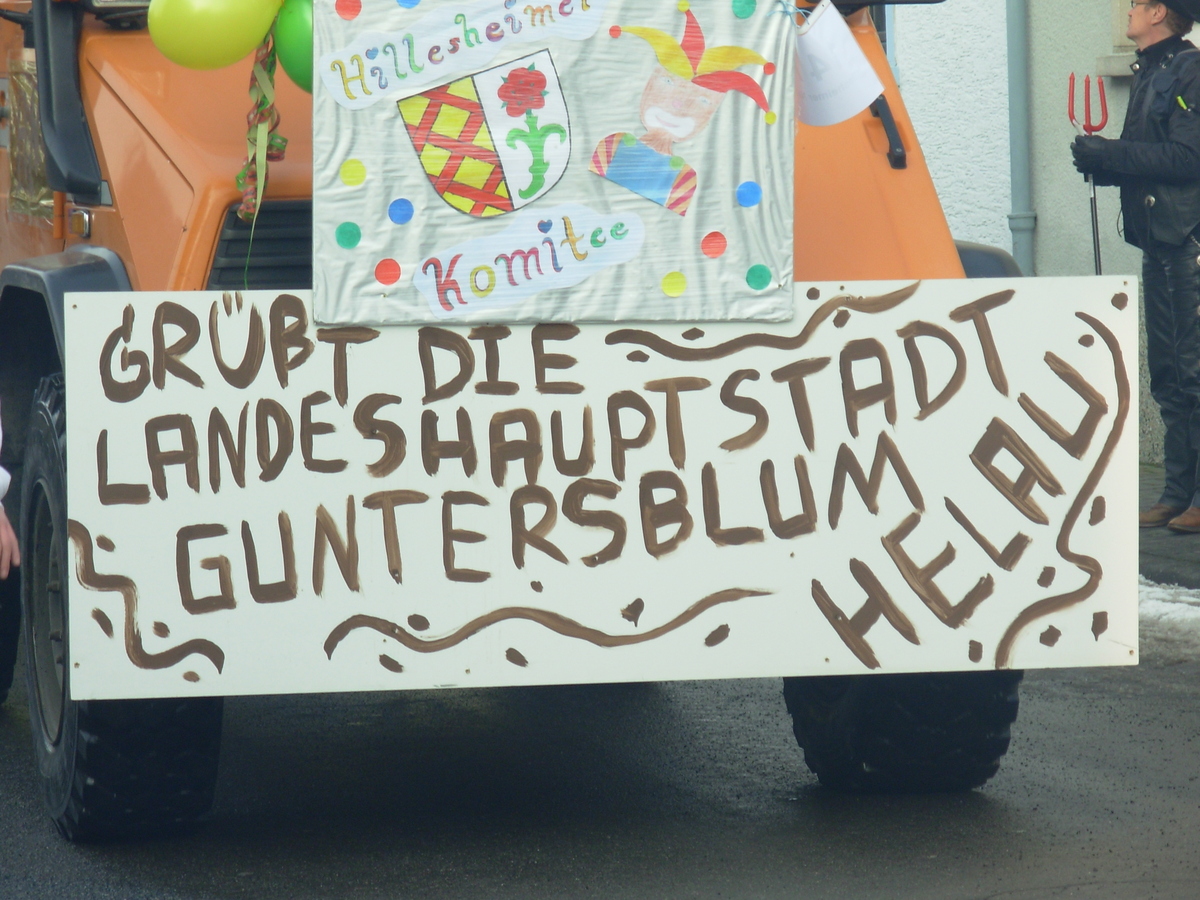 Hillesheimer
Komitee
GRÜßT DIE
LANDESHAUPTSTADT
GUNTERSBLUM
HELAU